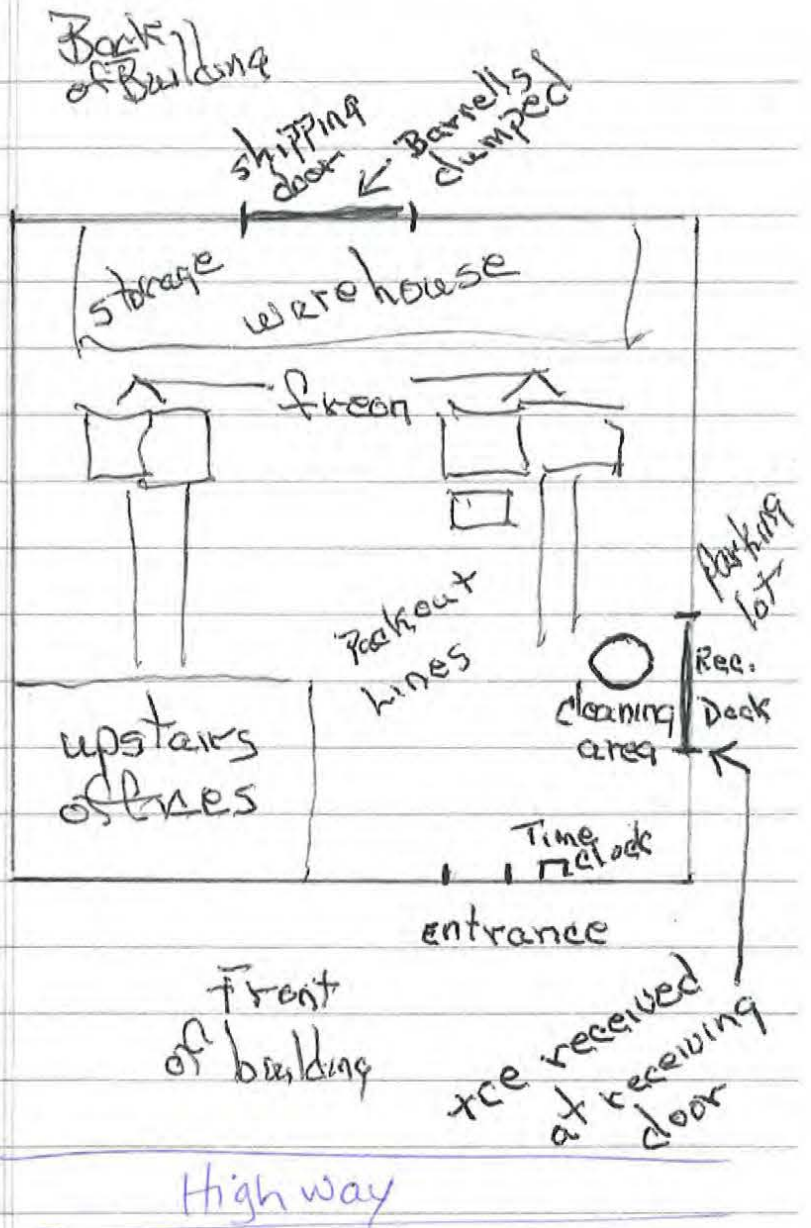 Back
of Building
shipping
door
Barrells
dumped
storage
warehouse
freon
Parking
lot
Packout
Lines
Rec.
Dock
cleaning
area
upstairs
offices
Time
clock
entrance
Front
of building
tce received
at receiving
door
Highway